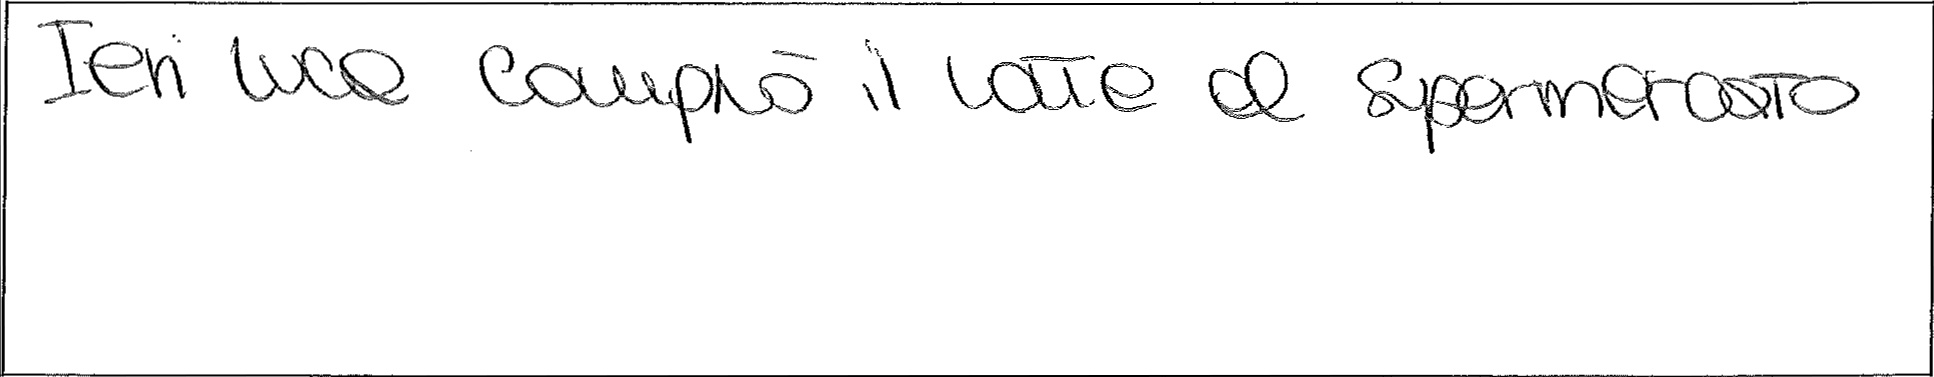 Ieri luca comprò il latte al supermercato